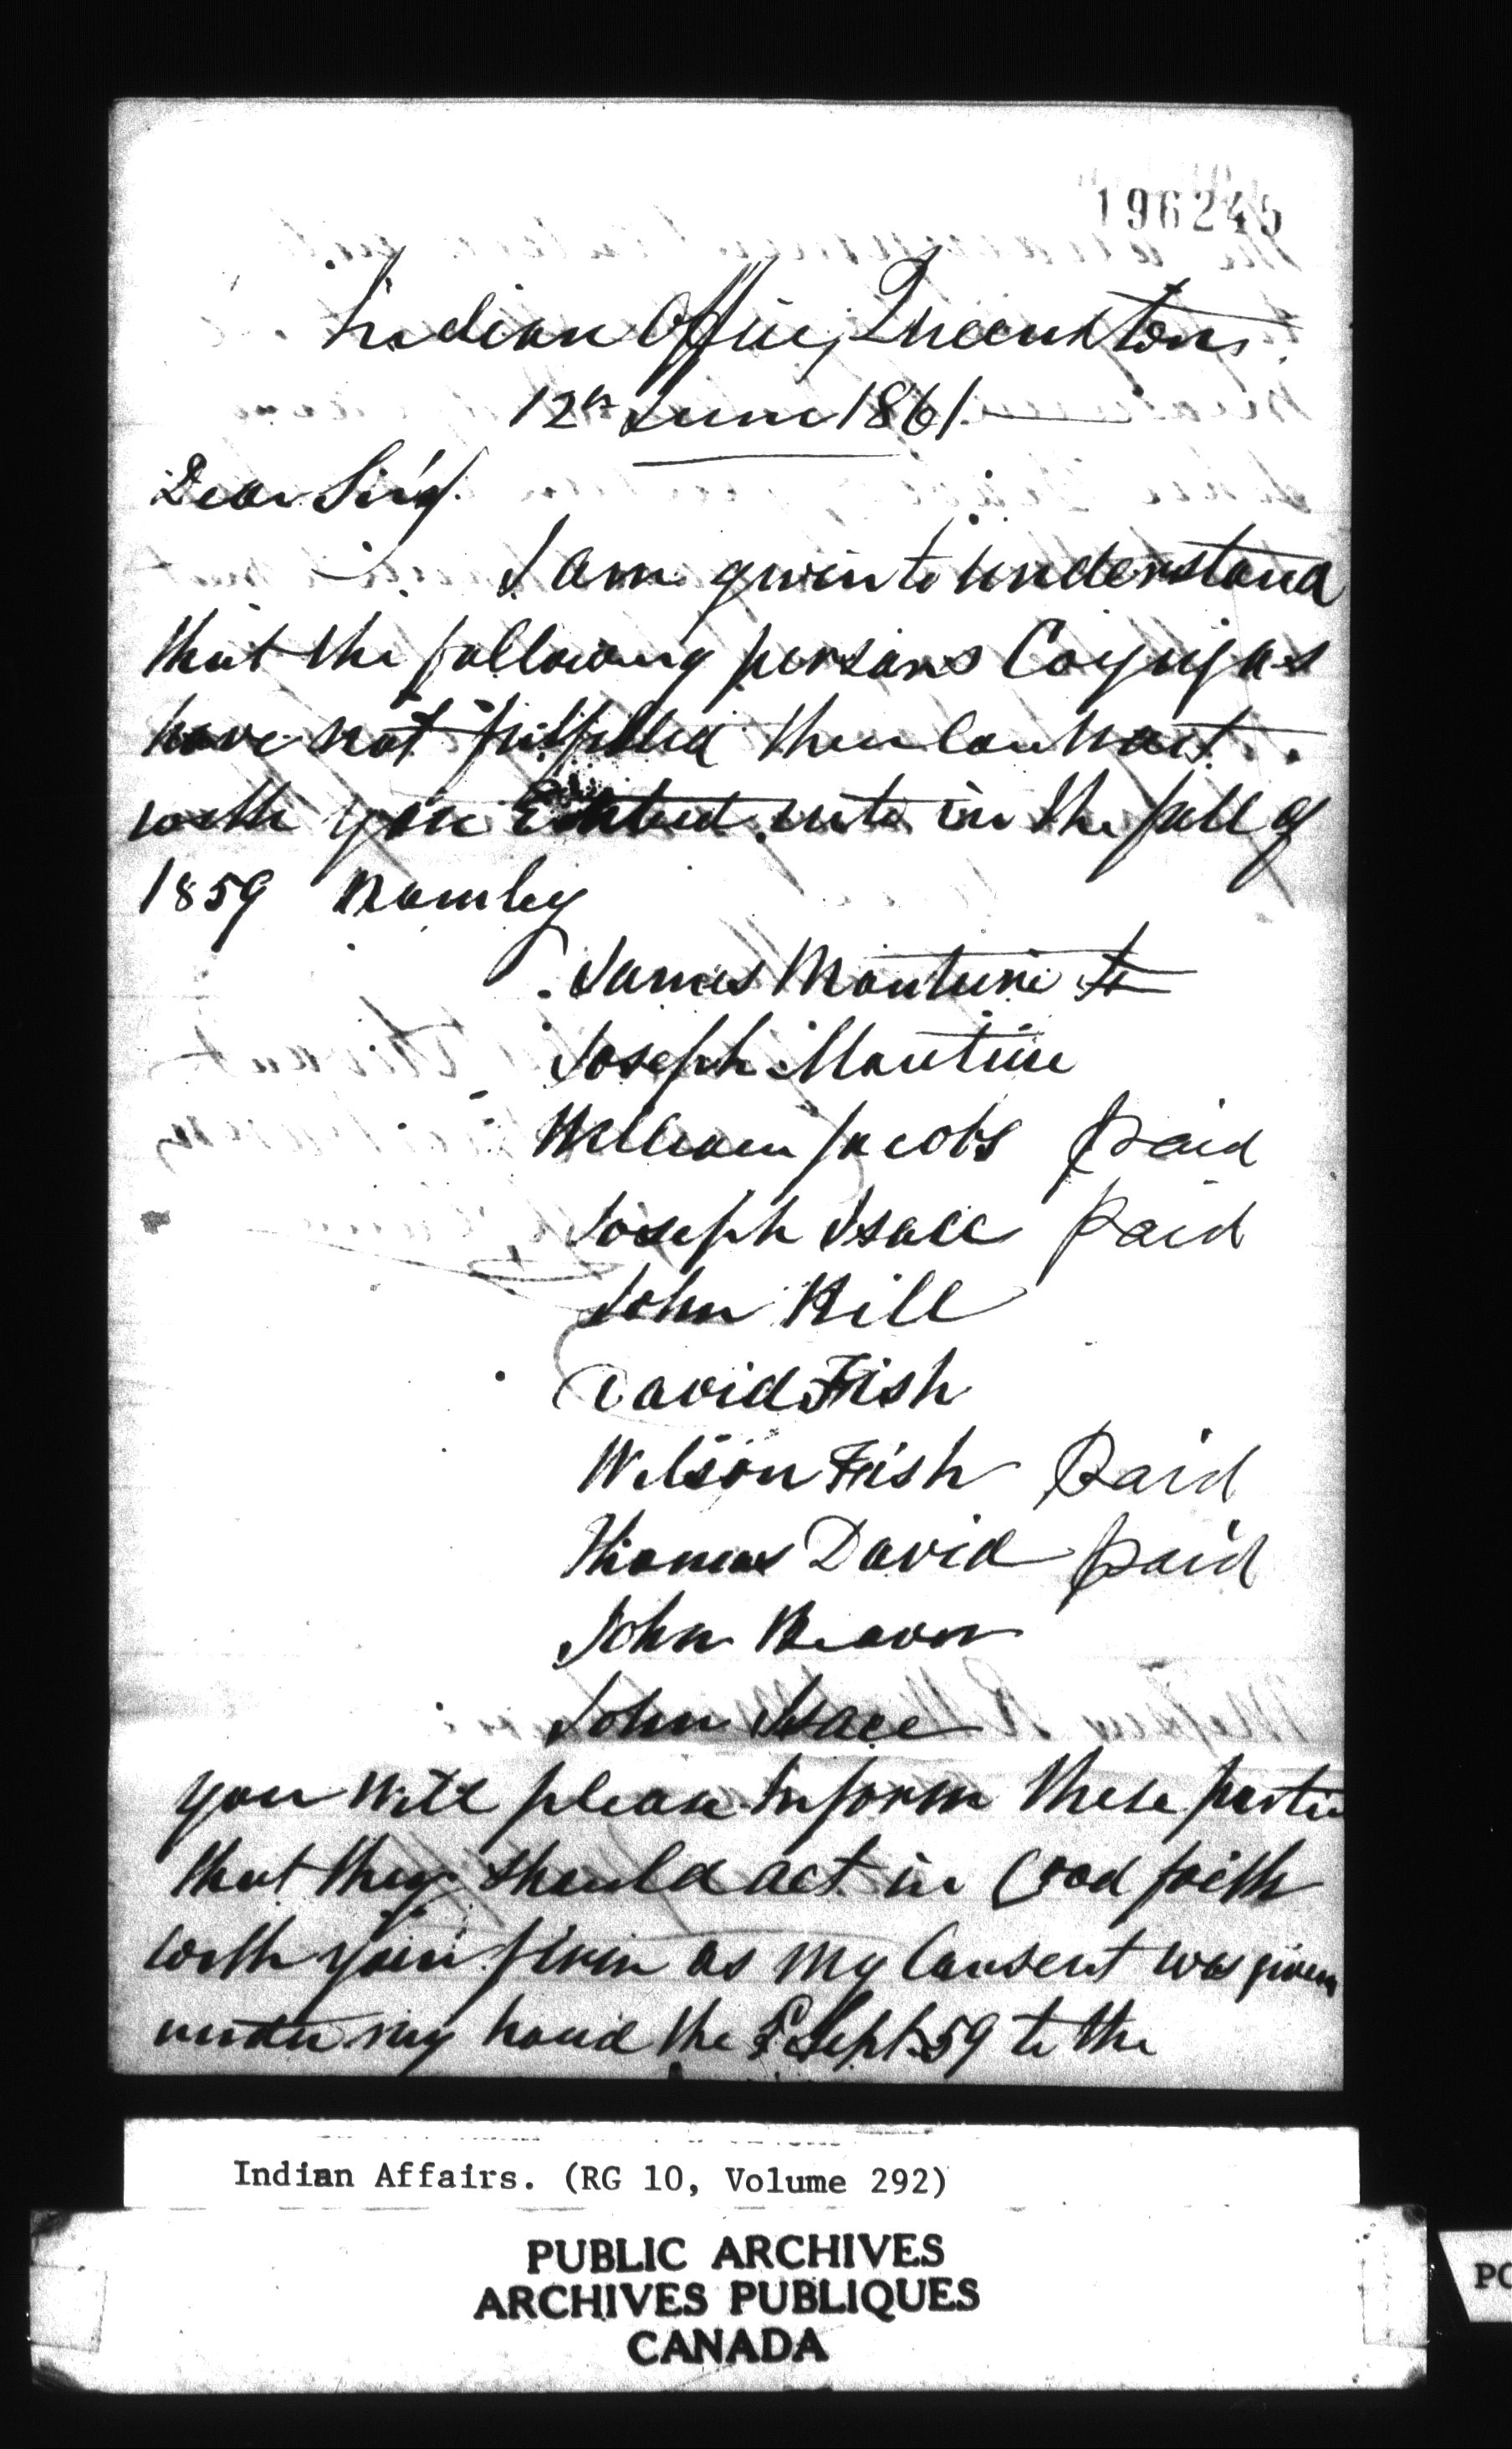 196245
Indian Office, Queenston
12th June 1861
Dear Sir
I am given to understand
that the following persons Cayugas
have not fulfilled their Contract
with you Entered into in the fall of
1859 Namley
James Monture
Joseph Monture
William Jacobs paid
Joseph Isacc paid
John Hill
David Fish
Wilson Fish Paid
Thomas David paid
John Beaver
John Isacc
you will please inform these parties
that they should act in Good faith
with your firm as my Consent was given
under my hand the Sept 59 to the
Indian Affairs. (RG 10, Volume 292)
PUBLIC ARCHIVES
ARCHIVES PUBLIQUES
CANADA
PO